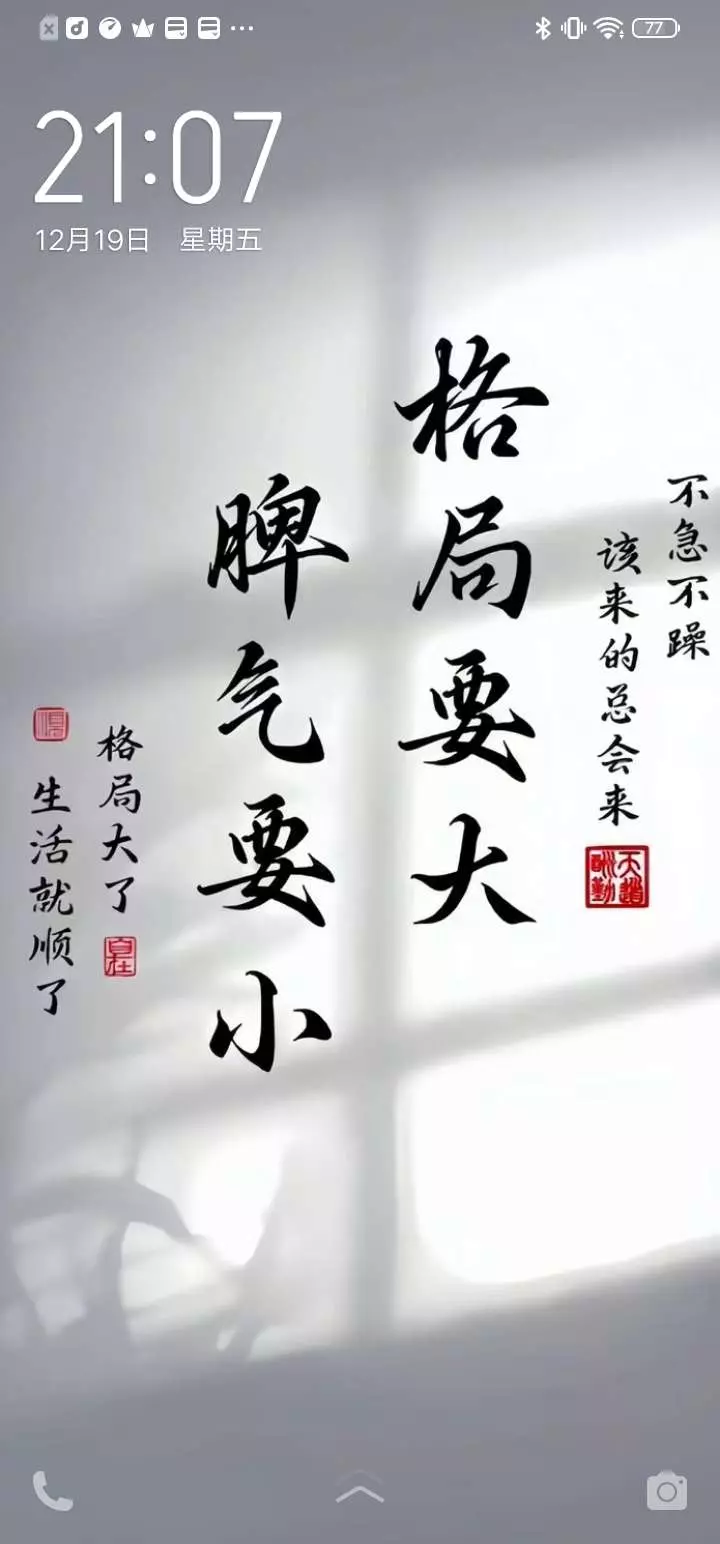 77
21:07
12月19日 星期五
不急不躁
该来的总会来
天道酬勤
格局要大
脾气要小
格局大了
自在
生活就顺了